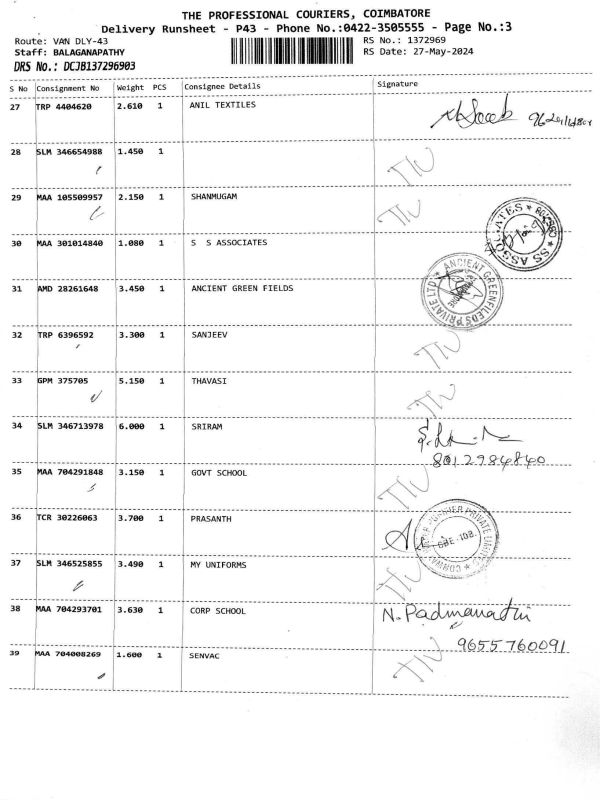 THE PROFESSIONAL COURIERS, COIMBATORE
Delivery Runsheet - P43 - Phone No.:0422-3505555 - Page No.:3
Route: VAN DLY-43 RS No.: 1372969
Staff: BALAGANAPATHY RS Date: 27-May-2024
DRS No.: DCJB137296903
S No Consignment No Weight PCS Consignee Details Signature
27 TRP 4404620 2.610 1 ANIL TEXTILES
28 SLM 346654988 1.450 1
29 MAA 105509957 2.150 1 SHANMUGAM
30 MAA 301014840 1.080 1 S S ASSOCIATES SS ASSOCIATES
31 AMD 28261648 3.450 1 ANCIENT GREEN FIELDS ANCIENT GREENFILEDS PRIVATE LTD
32 TRP 6396592 3.300 1 SANJEEV
33 GPM 375705 5.150 1 THAVASI
34 SLM 346713978 6.000 1 SRIRAM
8012984840
35 MAA 704291848 3.150 1 GOVT SCHOOL
36 TCR 30226063 3.700 1 PRASANTH PRIVATE LIMITED
37 SLM 346525855 3.490 1 MY UNIFORMS
38 MAA 704293701 3.630 1 CORP SCHOOL N. Padmanathi
9655760091
39 MAA 704008269 1.600 1 SENVAC